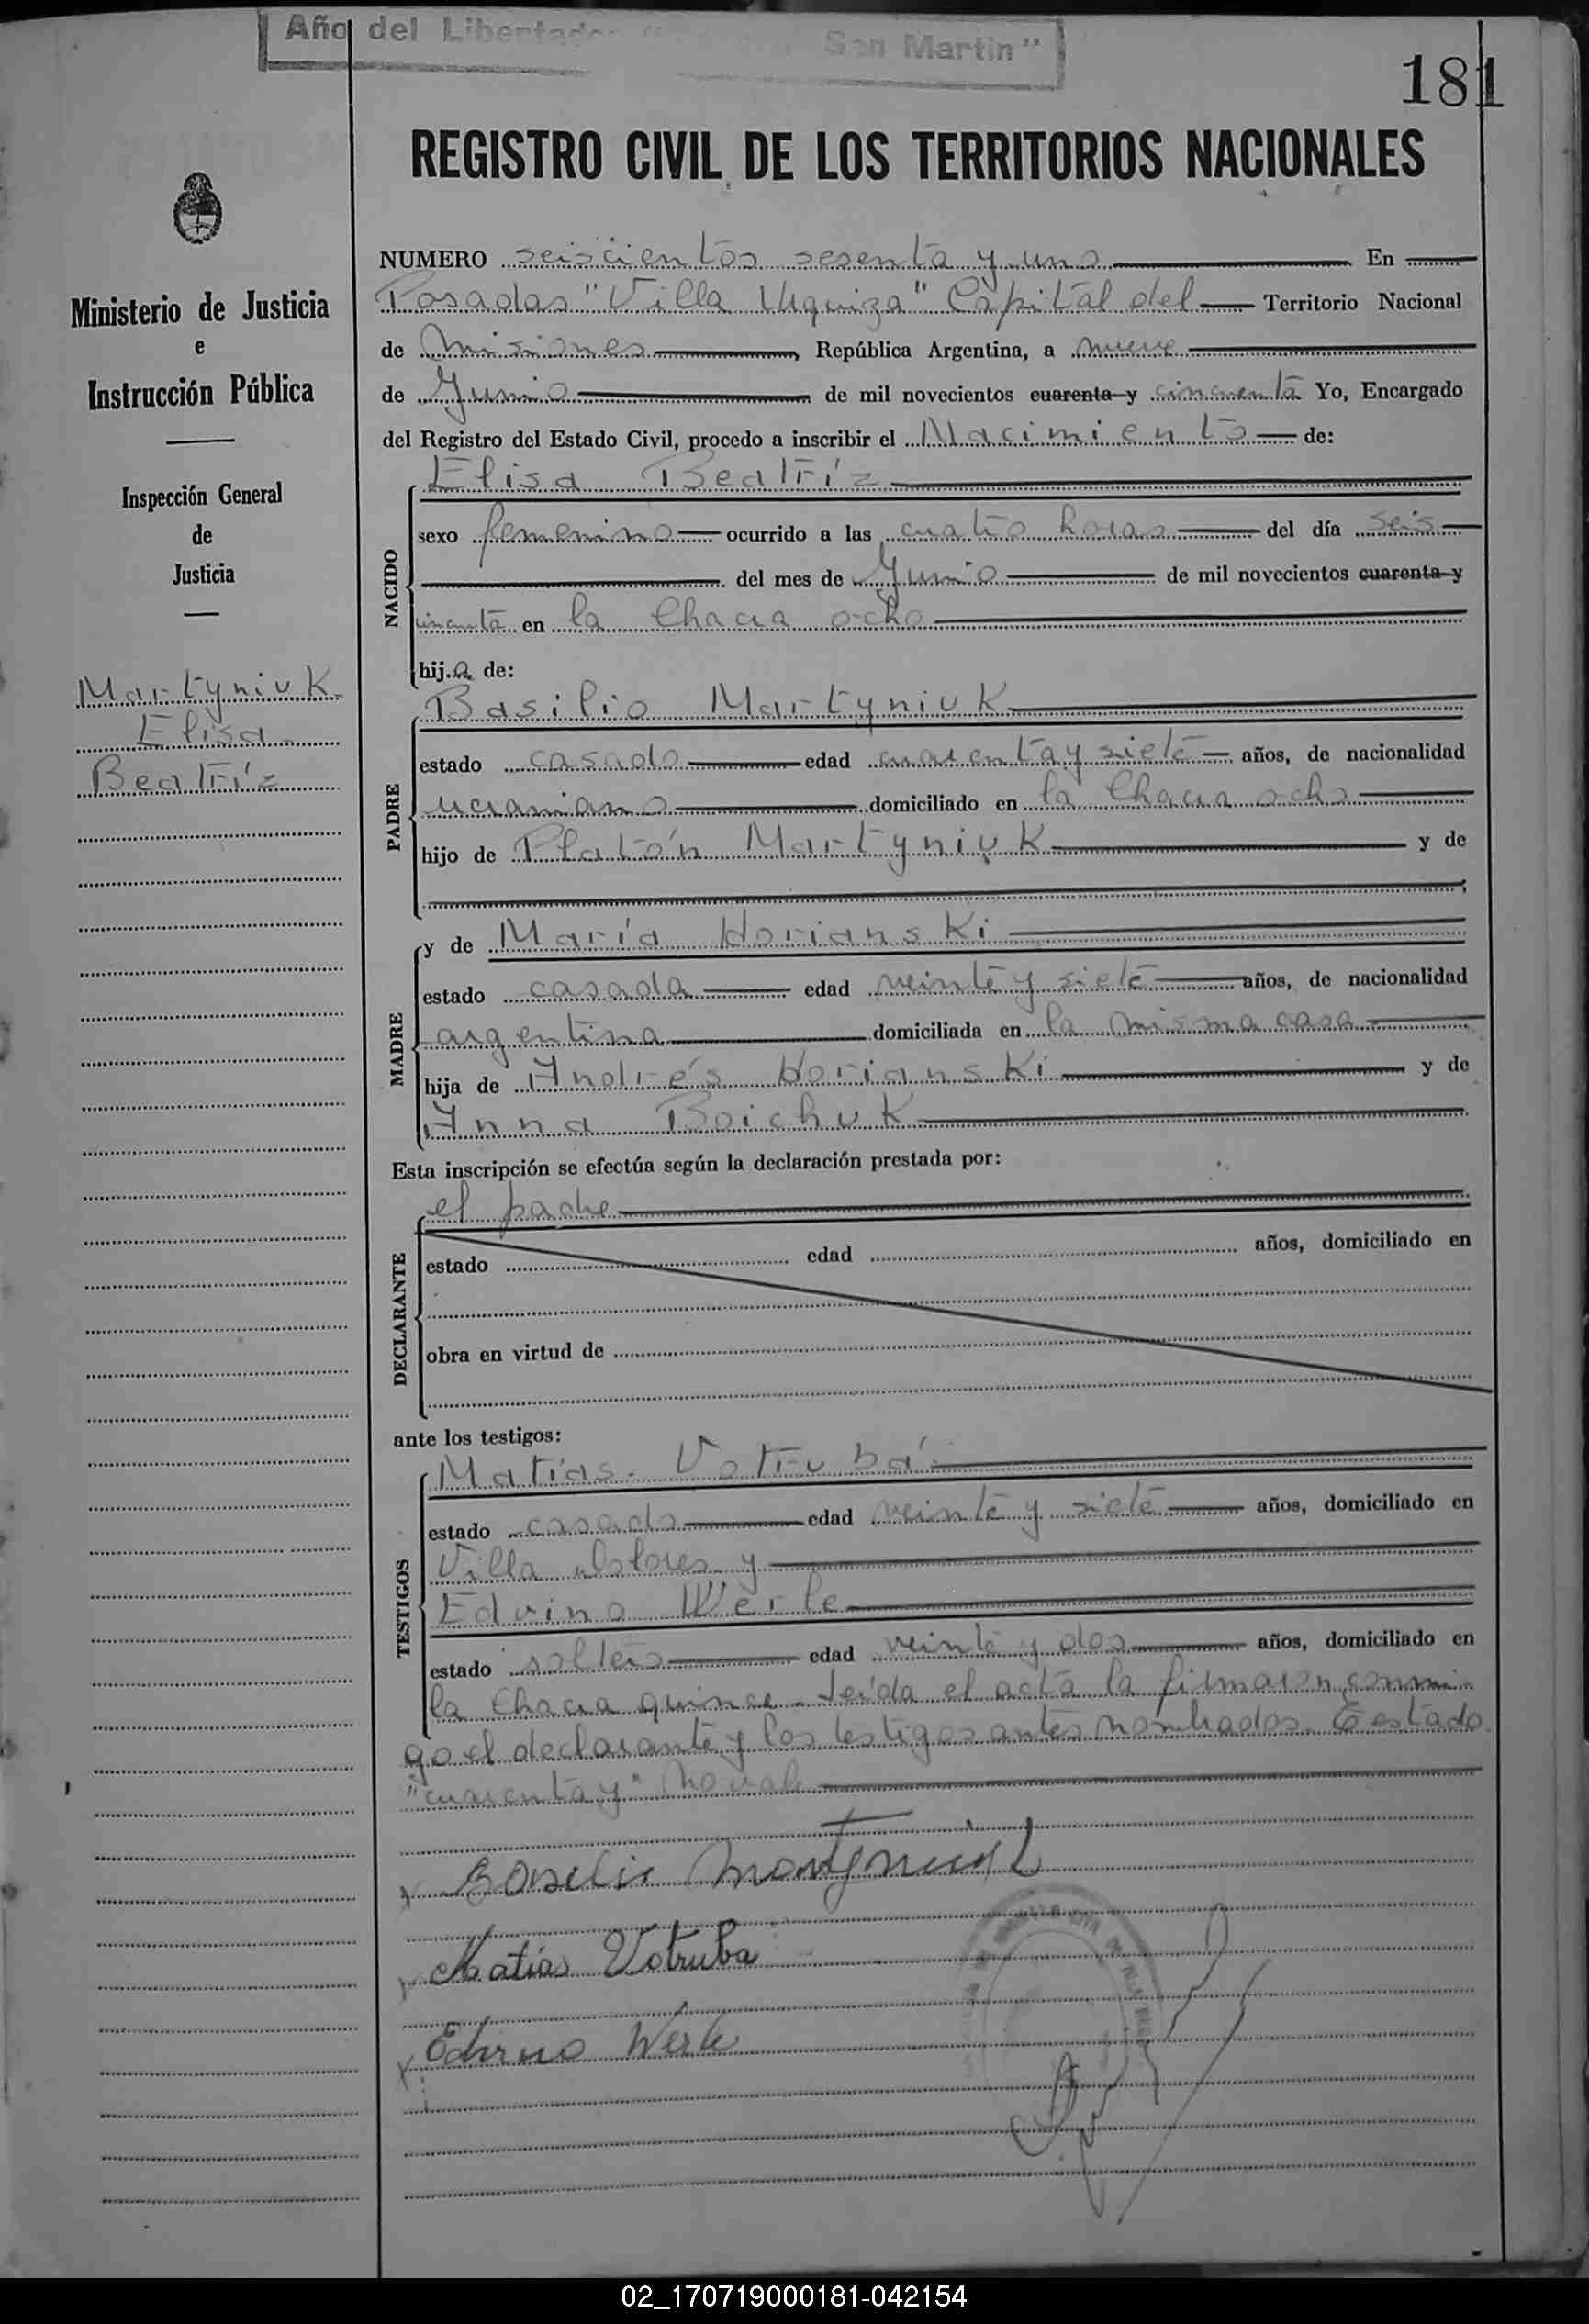 Año del Libertador San Martin"
181
REGISTRO CIVIL DE LOS TERRITORIOS NACIONALES
Ministerio de Justicia
e
Instrucción Pública
Inspección General
de
Justicia
Martyniuk
Elisa
Beatríz
NUMERO seiscientos sesenta y uno En
Posadas "Villa Urquiza" Capital del Territorio Nacional
de Misiones, República Argentina, a nueve
de Junio de mil novecientos cuarenta y cincuenta Yo, Encargado
del Registro del Estado Civil, procedo a inscribir el Nacimiento de:
NACIDO
Elisa Beatríz
sexo femenino ocurrido a las cuatro horas del día seis
del mes de Junio de mil novecientos cuarenta y
cincuenta en la Chacra ocho
hija de:
PADRE
Basilio Martyniuk
estado casado edad cuarenta y siete años, de nacionalidad
ucraniano domiciliado en la Chacra ocho
hijo de Platón Martyniuk y de
MADRE
y de María Horianski
estado casada edad veinte y siete años, de nacionalidad
argentina domiciliada en la misma casa
hija de Andrés Horianski y de
Anna Boichuk
Esta inscripción se efectúa según la declaración prestada por:
DECLARANTE
el padre
estado edad años, domiciliado en
obra en virtud de
ante los testigos:
TESTIGOS
Matías Votrubá
estado casado edad veinte y siete años, domiciliado en
Villa Dolores y
Edvino Werle
estado soltero edad veinte y dos años, domiciliado en
la Chacra quince. Leída el acta la firmaron conmi-
go el declarante y los testigos antes nombrados. Testado
"cuarenta y" No vale
Basilio Martyniuk
Matías Votruba
Edvino Werle
02_170719000181-042154